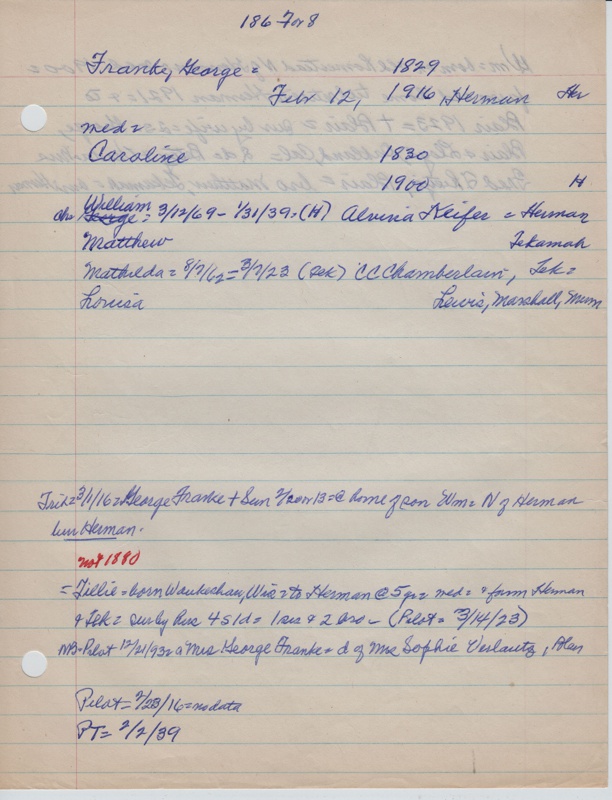 186 7 or 8
Franke, George = 1829
Febr 12, 1916, Herman Her
med =
Caroline 1830
1900 H
William
ch= George = 3/12/69 - 1/31/39 = (H) Alvina Keifer = Herman
Matthew Tekamah
Mathilda = 8/7/62 = 3/7/23 (Tek) CC Chamberlain, Tek =
Louisa Lewis, Marshall, Mum
Trib = 3/1/16 = George Franke + Sun 2/20 or 13 = @ home of son Wm = N of Herman
bur Herman.
not 1880
= Tillie = born Waukeshau, Wis = to Herman @ 5 yrs = med = + farm Herman
+ Tek = sur by hus 4 s 1 d = 1 sis + 2 bro - (Pilot = 3/14/23)
NB = Pilot 12/21/93 = a Mrs George Franke = d of Mrs Sophie , Blair
Pilot = 2/23/16 = no data
PT = 2/2/39